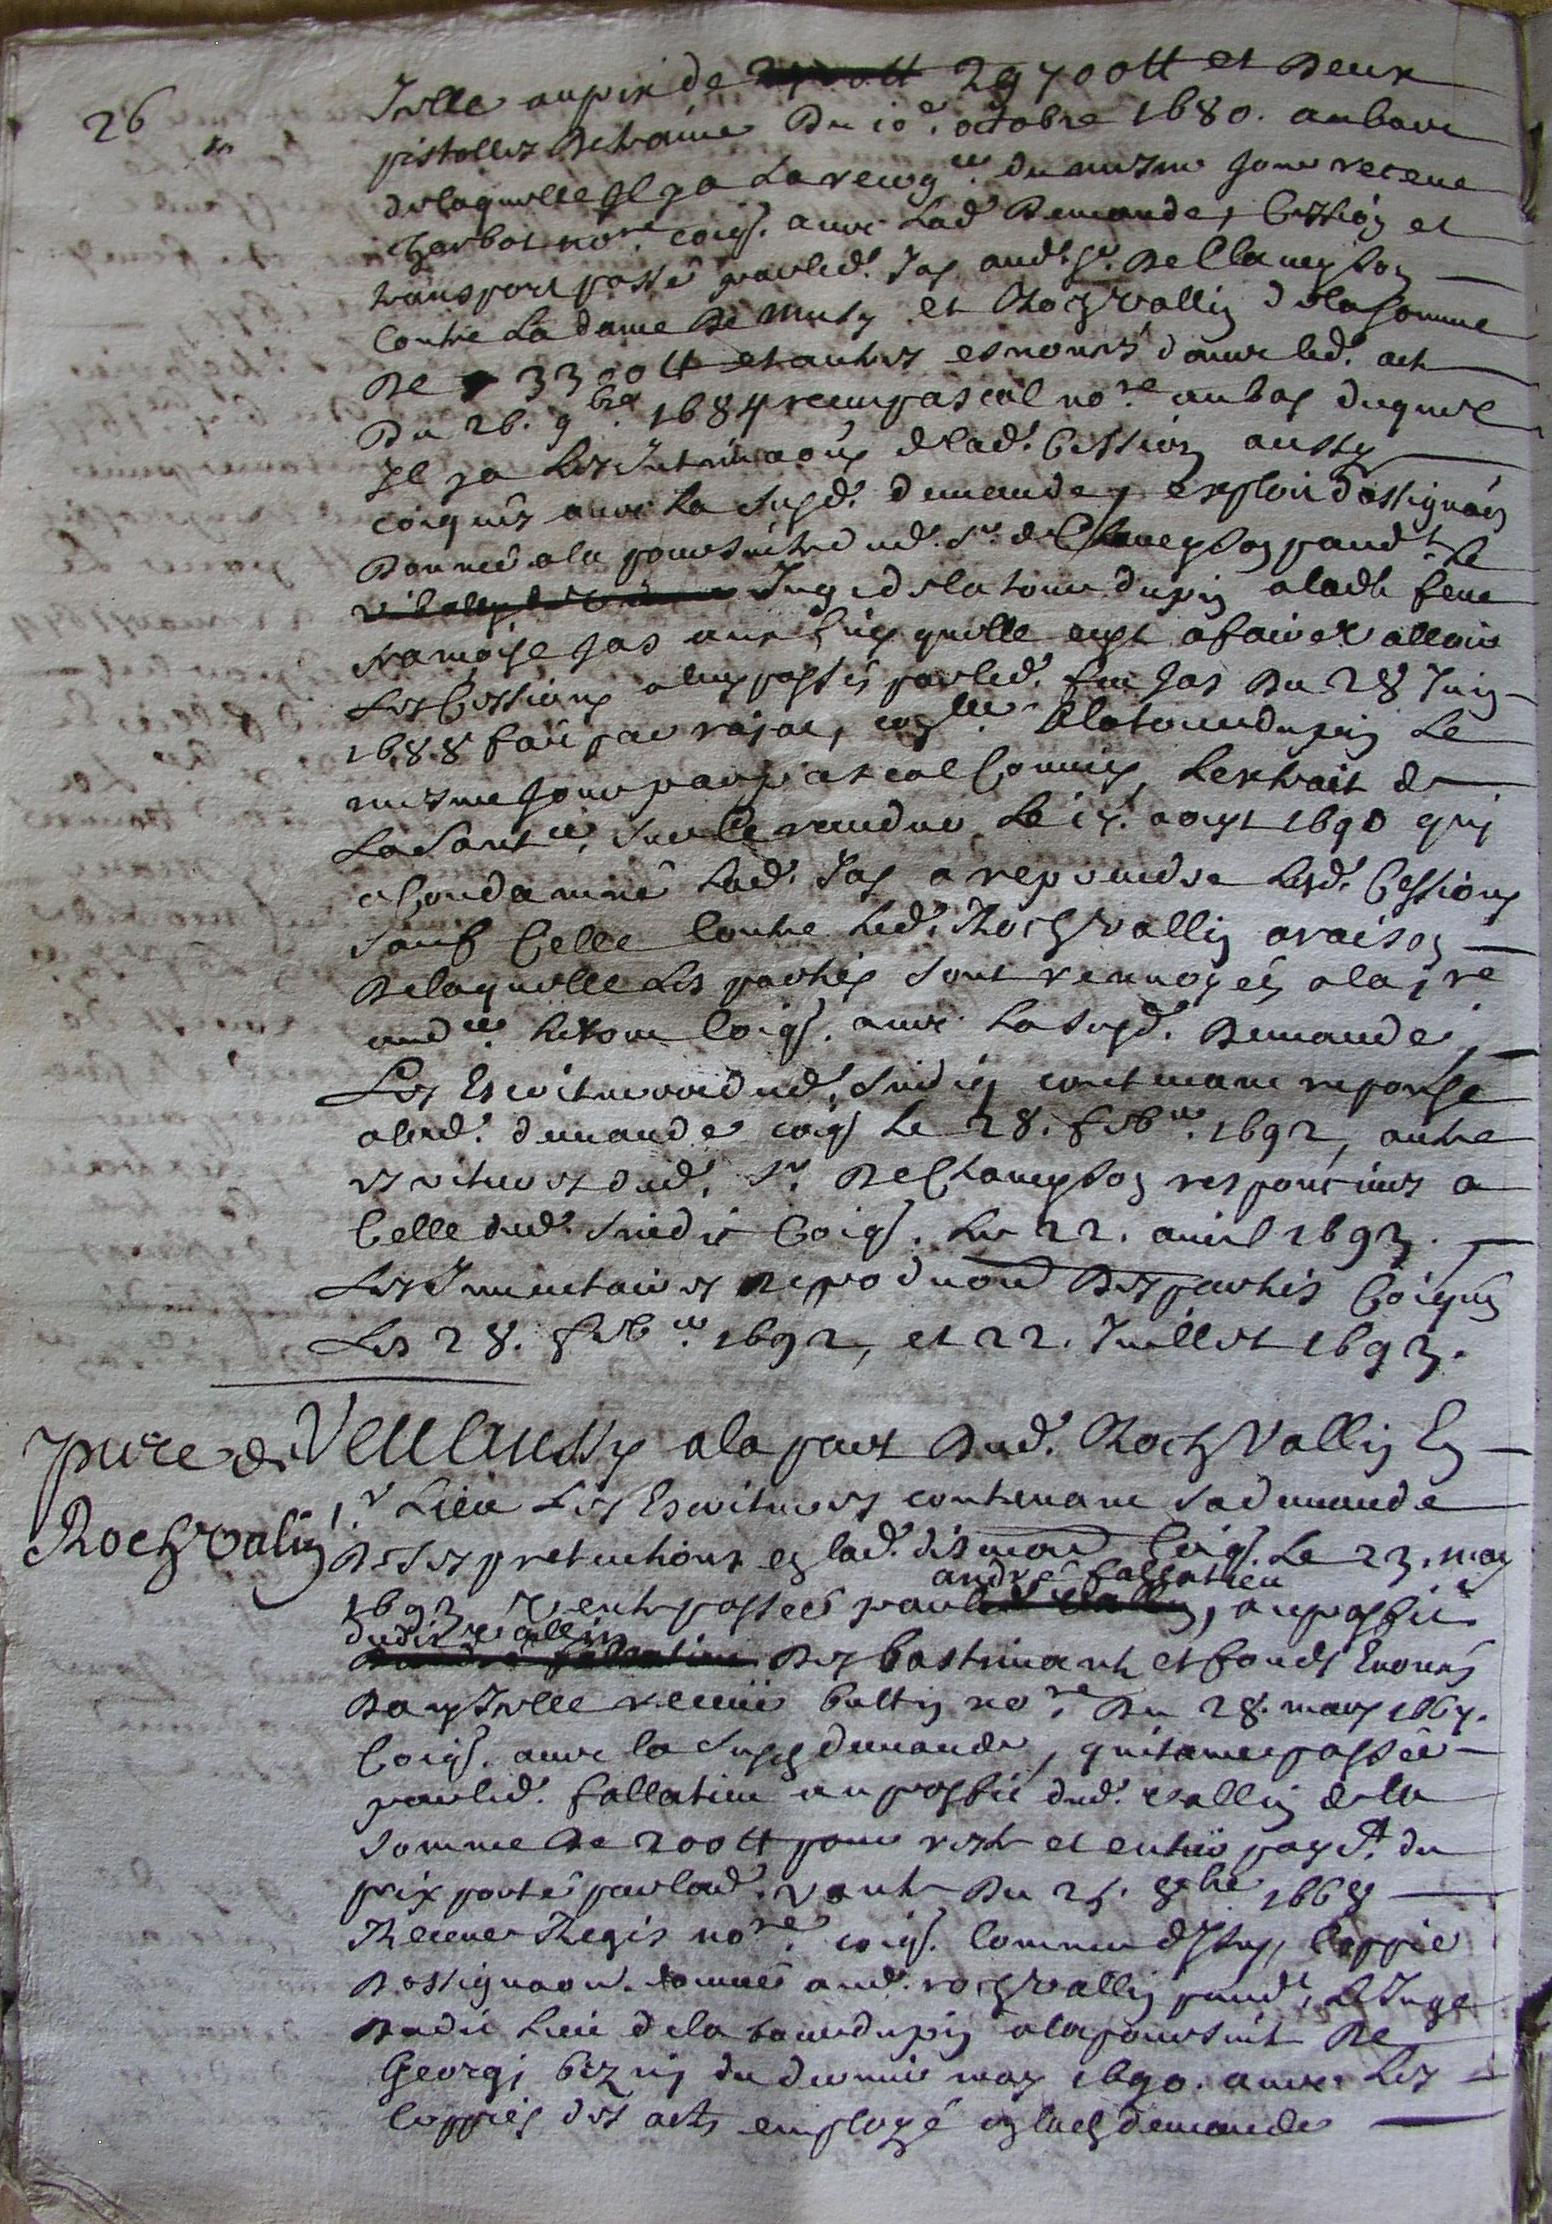 26
Icelle au prix de 29700tt et Deux
pistolles Detraine Du 10e. octobre 1680. au bas
de laquelle Il y a la recogce. du mesme Jour receue
Charbot nore. coigs. avec lad. Demande, Cession et
transport passé par led. Jas aud. Sr. De Champson
Contre La dame De Musy et Roch Vallin de la somme
De 3300tt et autres esnoncés dans led. acte
Du 26. 9bre 1684 receu pascal nore. au bas duquel
Il y a Les Intimaons de lad. Cession aussy
coigniés avec la susd. demande, exploit dassignaon
Donnée a la poursuitte dud. Sr. de Champson pard.t le
Juge de la tour du pin a ladte feue
francoise Jas aux fins quelle eust a faire valloir
Les Cessions a luy passées par led. feu Jas Du 28 Juin
1688 fait par rajat, a la tour du pin Le
mesme Jour par pascal Commis, Lextrait de
La Santce. sur Ce randue Le aoust 1690 qui
a Condamné Lad. Jas a reprendre Lesd. Cessions
sauf Celle Contre Led. Roch Vallin a raison
De laquelle Les parties sont renvoyés a la 1re
audce. Le tout Coigs. avec La susd. Demande,
Les Escritures dud. Sindic contenant reponse
a lad. demande coigs Le 28. febvr. 1692, autre
escritures dud. Sr. De Champson responcives a
Celle dud. Sindic Coigs. Le 22. avril 1693.
Les Inventaires De produon Des parties Coigniés
Les 28. febvr. 1692, et 22. Juillet 1693.
piece de
Roch Valin
Veu aussy a la part Dud. Roch Vallin En
1r. Lieu Les Escritures contenant sa demande
De ses pretentions en lad. Coigs. Le 23. may
1693 vente passée par andré fallatieu, au proffit
dudit vallin Des bastimants et fonds Enoncés
Dans Icelle receue bultin nore. Du 28. mars 1667.
Coigs. avec la susd demande, quitance passée
par led. fallatieu au proffit dud. vallin de la
somme De 200tt pour reste et entier payet. du
prix porté par lad. vante Du 25. 8bre 1668
Receue Regis nore. coigs. Comme dessus, Coppie
Dassignaon. donnée aud. roch vallin pard.t Le Juge
Dudit Lieu de la tour du pin a la poursuite De
George du dernier may 1690. avec Les
Coppies des actes employé en lad demande